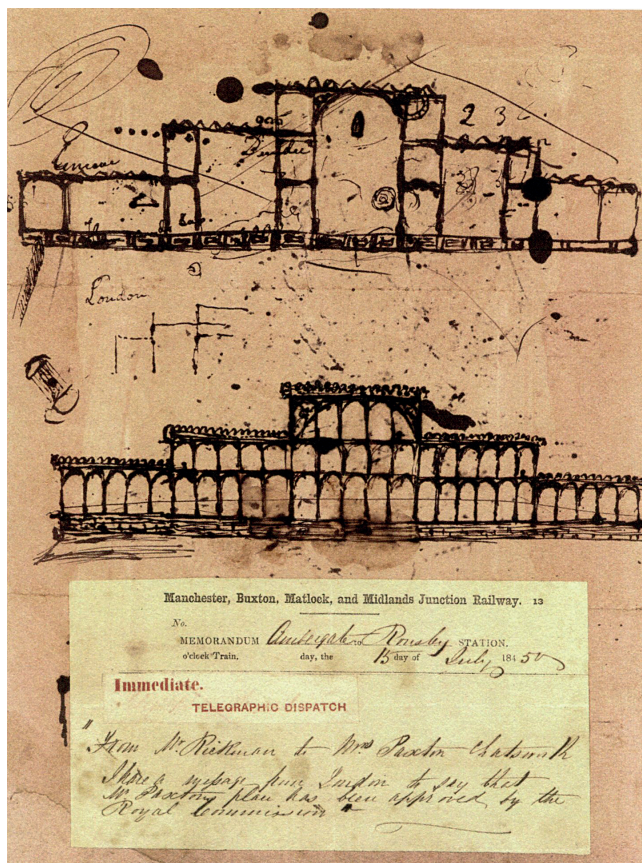 2 3
London
Manchester, Buxton, Matlock, and Midlands Junction Railway. 13
No.
MEMORANDUM Ambergate to Rowsley STATION.
o'clock Train. day, the 15 day of July 1850
Immediate.
TELEGRAPHIC DISPATCH
"From Mr Rickman to Mrs Paxton Chatsworth
I have a message from London to say that
Mr Paxtons plan has been approved by the
Royal Commission"